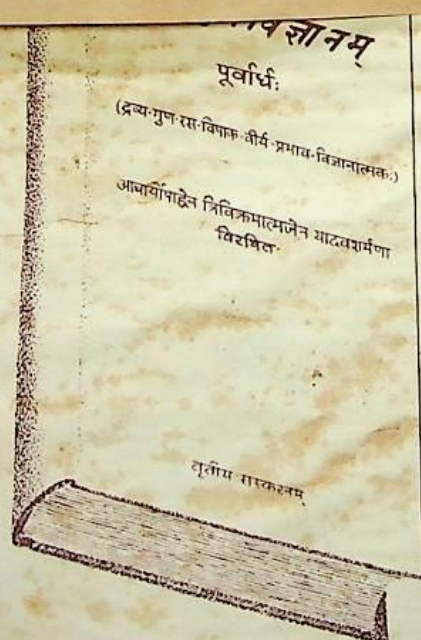 विज्ञानम्
पूर्वार्धः
(द्रव्य-गुण-रस-विपाक-वीर्य-प्रभाव-विज्ञानात्मकः)
आचार्योपाह्वेन त्रिविक्रमात्मजेन यादवशर्मणा
विरचित
तृतीय संस्करणम्